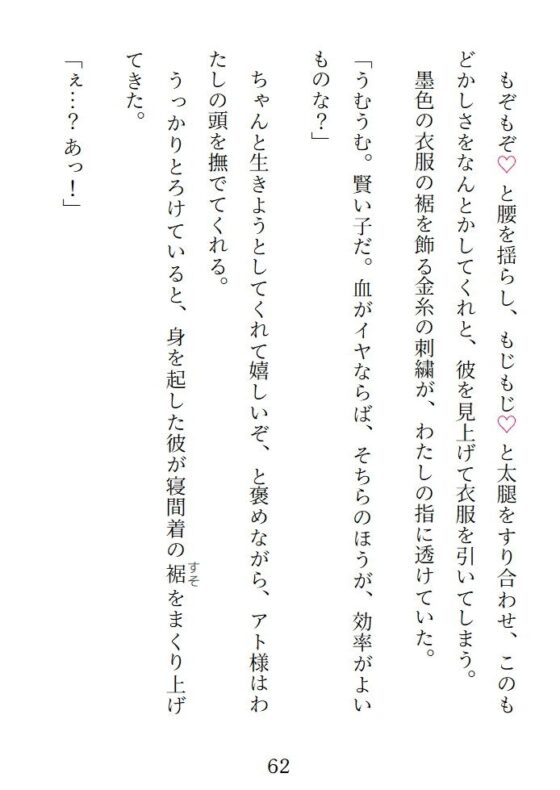 もぞもぞ♡と腰を揺らし、もじもじ♡と太腿をすり合わせ、このも
どかしさをなんとかしてくれと、彼を見上げて衣服を引いてしまう。
墨色の衣服の裾を飾る金糸の刺繍が、わたしの指に透けていた。
「うむうむ。賢い子だ。血がイヤならば、そちらのほうが、効率がよい
ものな？」
ちゃんと生きようとしてくれて嬉しいぞ、と褒めながら、アト様はわ
たしの頭を撫でてくれる。
うっかりとろけていると、身を起した彼が寝間着の裾すそをまくり上げ
てきた。
「ぇ…？あっ！」
62